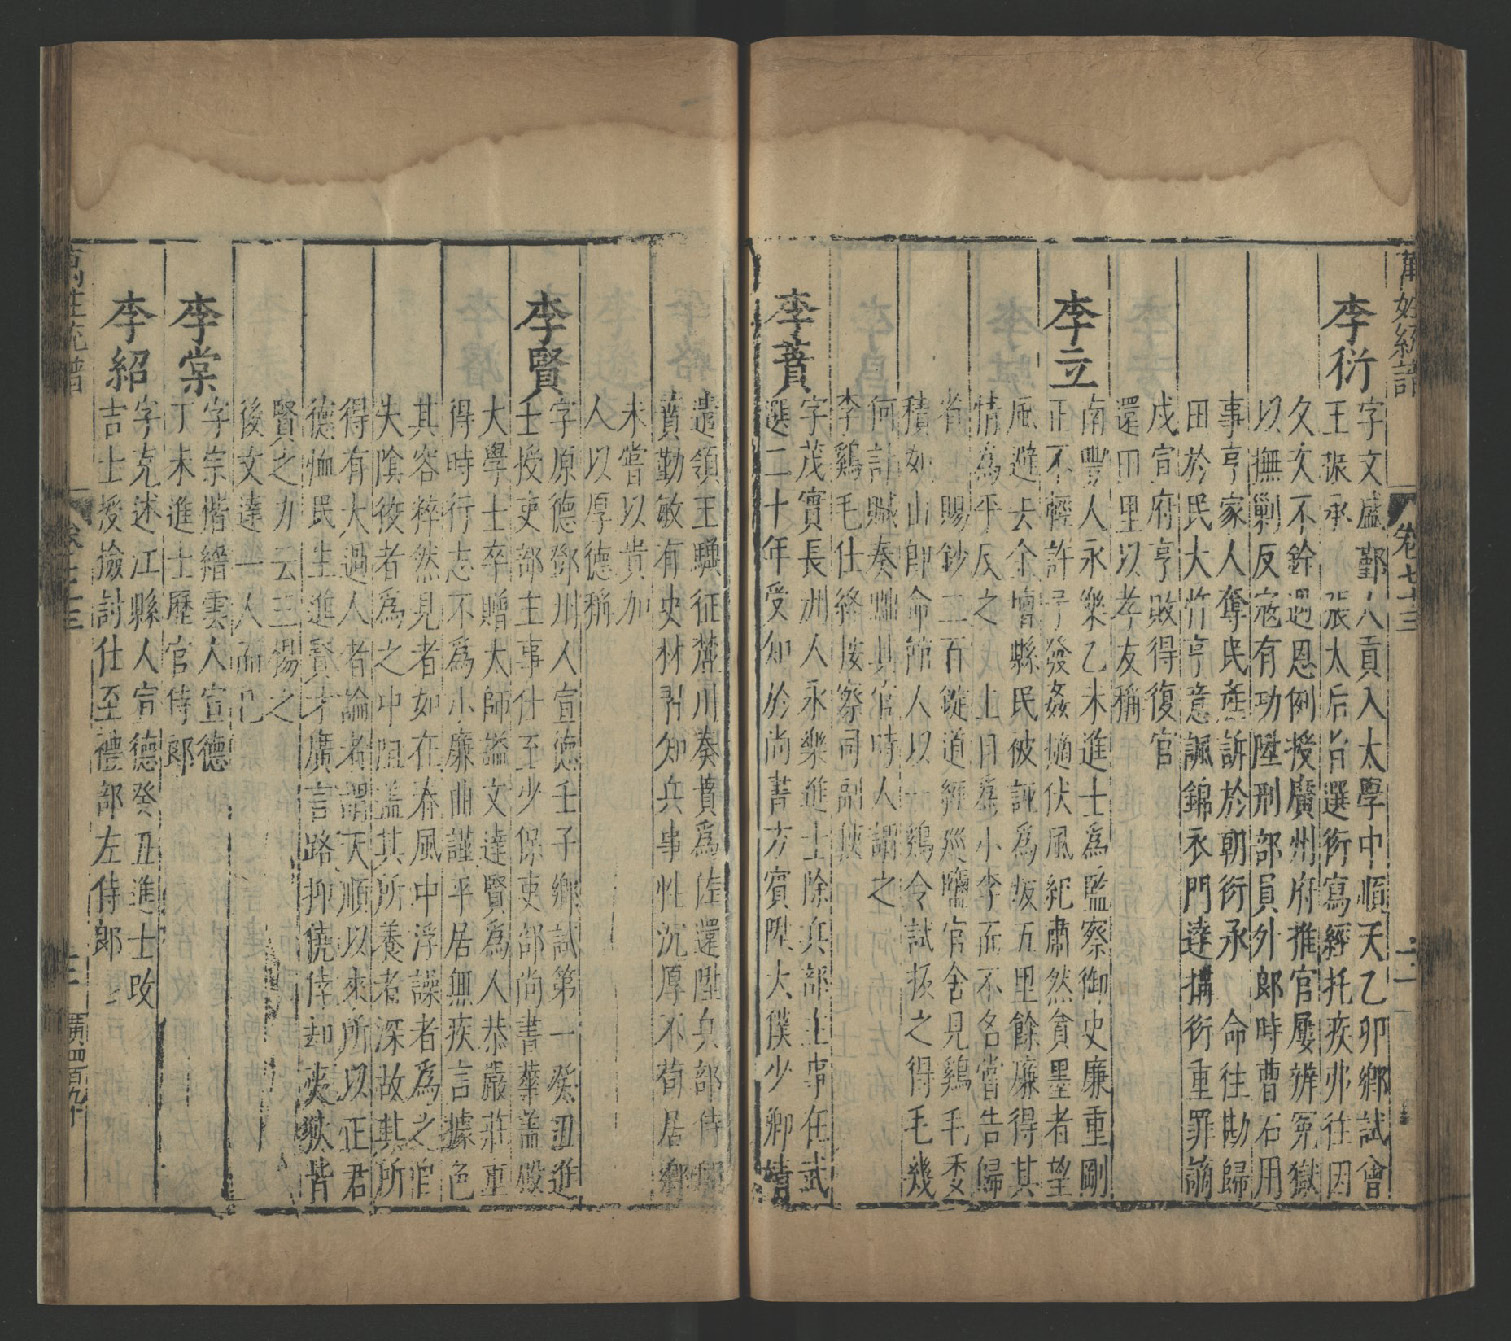 萬姓統譜 卷七十三
李衍
字文盛鄞人貢入太學中順天乙卯鄉試會
王振承 張太后旨選衍寫經托疾弗往因
久次不銓遇恩例授廣州府推官屡辨冤獄
以撫剿反寇有功陞刑部員外郎時曹石用
事亨家人奪民産訴於朝衍承 命往勘歸
田於民大忤亨意諷錦衣門達搆衍重罪謫
戍宣府亨敗得復官
還田里以孝友稱
李立
南豐人永樂乙未進士爲監察御史廉重剛
正不輕許予發姦擿伏風紀肅然貪墨者望
風避去金壇縣民被誣爲叛五里餘廉得其
情爲平反之 上目爲小李而不名嘗告歸
省 賜鈔二百錠道經巡鹽官舍見鷄毛委
積如山即命飾人以一鷄令試拔之得毛幾
何計贓奏黜其官時人謂之
李鷄毛仕終按察司副使
李蕡
字茂實長洲人永樂進士除兵部主事任武
選二十年受知於尚書方賓陞太僕少卿靖
遠領王驥征麓川奏蕡爲佐還陞兵部侍郎
蕡勤敏有史材習知兵事性沉厚不苟居鄉
未嘗以貴加
人以厚德稱
李賢
字原德鄧州人宣德壬子鄉試第一癸丑進
士授吏部主事仕至少保吏部尚書華蓋殿
大學士卒贈太師謚文達賢爲人恭嚴莊重
得時行志不爲小廉曲謹平居無疾言據色
其容粹然見者如在春風中浮譟者爲之自
失陰狡者爲之中阻蓋其所養者深故其所
得有大過人者論者謂天順以來所以正君
德恤民生進賢才廣言路抑僥倖却夷狄皆
賢之力云三楊之
後文達一人而已
李棠
字宗楷縉雲人宣德
丁未進士歷官侍郎
李紹
字克述江縣人宣德癸丑進士改
吉士授撿討仕至禮部左侍郎
萬姓統譜 卷七十三 廣四百九十